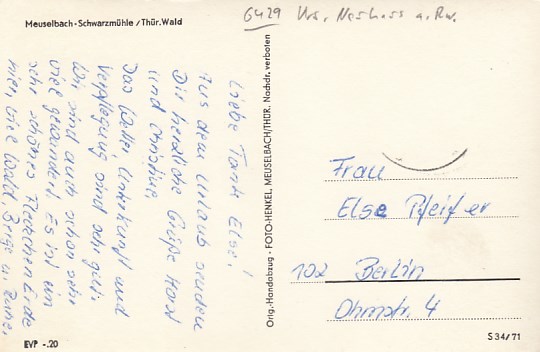 6429 Krs. Neuhaus a. Rw.
Meuselbach-Schwarzmühle /Thür. Wald
Liebe Tante Else!
Aus dem Urlaub senden
Dir herzliche Grüße Horst
und Christine
Das Wetter, Unterkunft und
Verpflegung sind sehr gut.
Wir sind auch schon sehr
viel gewandert. Es ist ein
sehr schönes Fleckchen Erde
hier, viel Wald, Berge u. Ruhe.
EVP -.20
Orig.-Handabzug · FOTO-HENKEL, MEUSELBACH/THÜR. Nachdr. verboten
Frau
Else Pfeiffer
102 Berlin
Ohmstr. 4
S 34/71